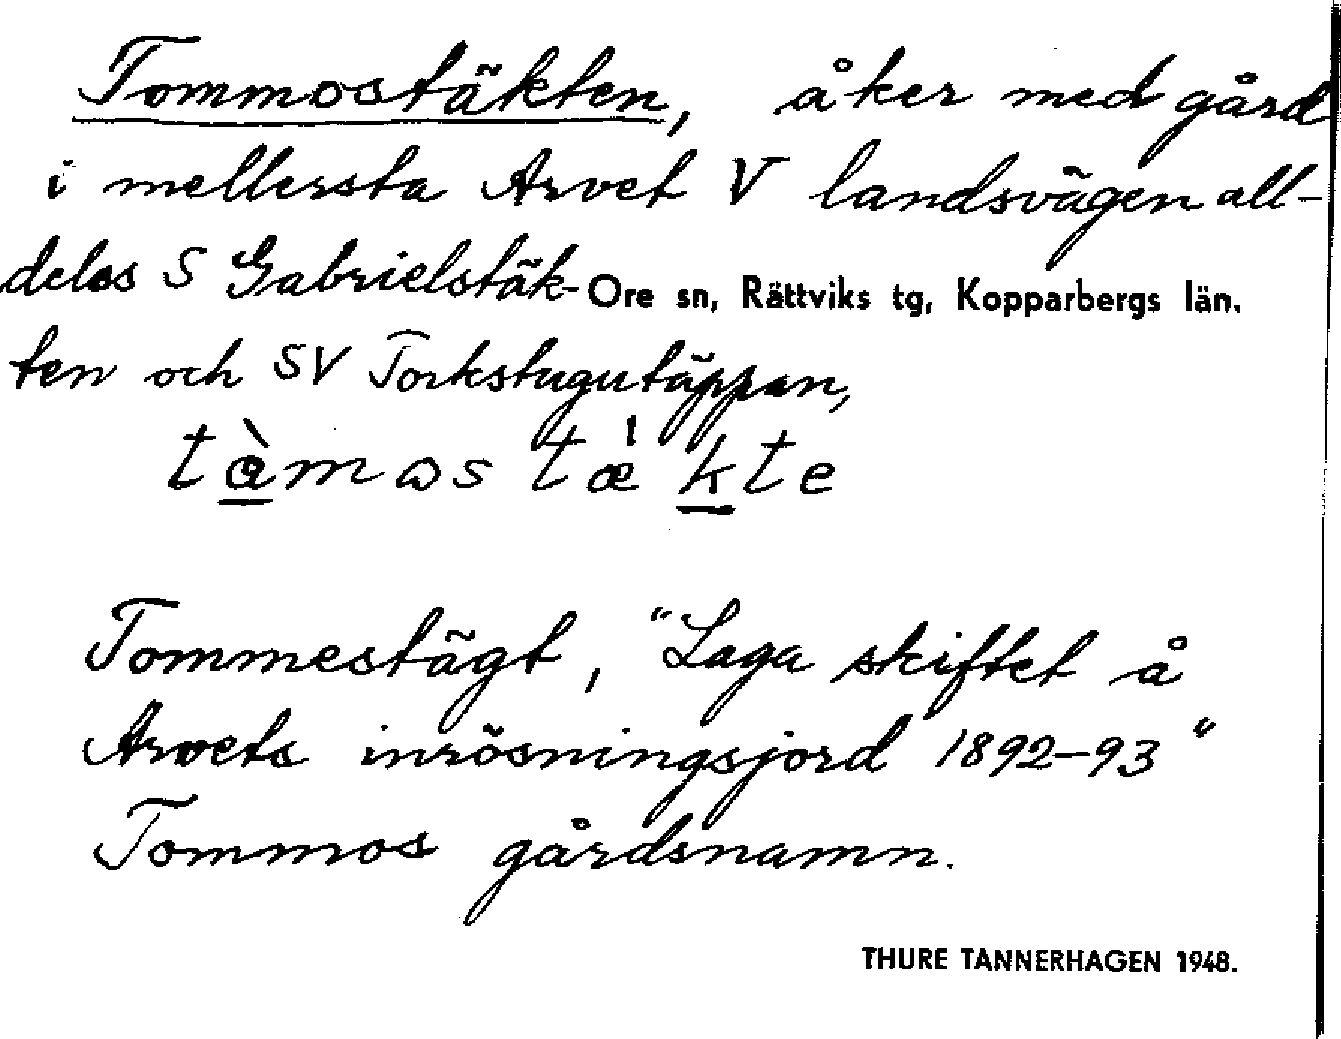 Tommostäkten, åker med gård
i mellersta Arvet V landsvägen all-
deles S Gabrielstäk-
Ore sn, Rättviks tg, Kopparbergs län.
ten och SV Torkstugutäppan,
Tommestägt, "Laga skiftet å
Arvets inrösningsjord 1892-93"
Tommos gårdsnamn.
THURE TANNERHAGEN 1948.